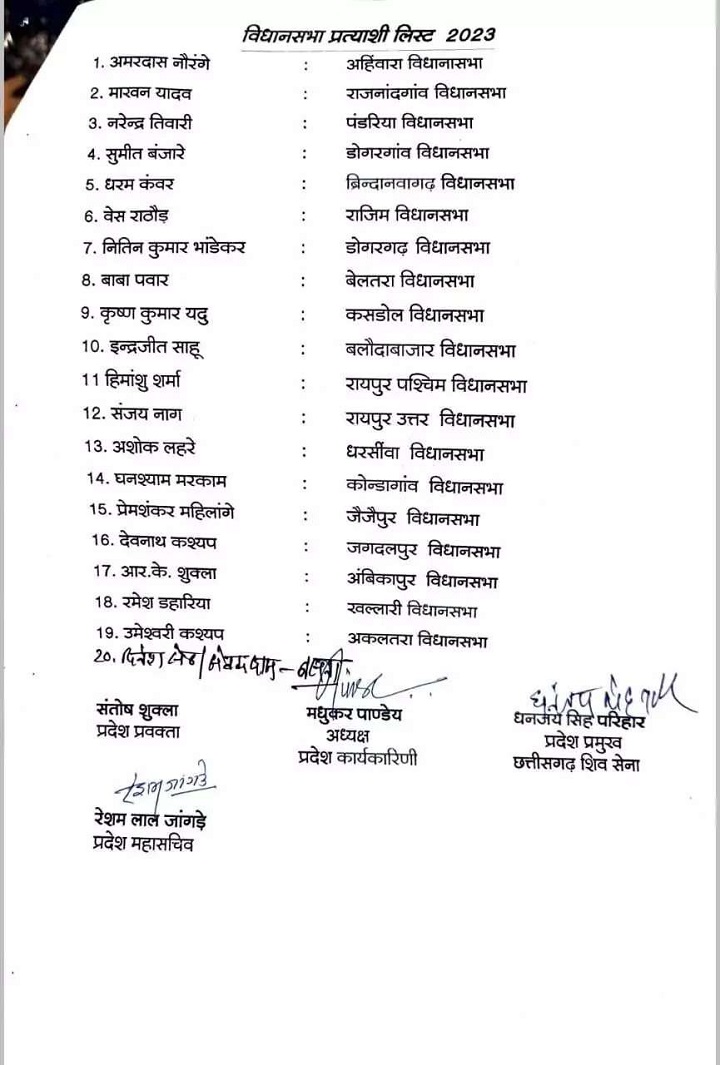 विधानसभा प्रत्याशी लिस्ट 2023
1. अमरदास नौरंगे : अहिंवारा विधानासभा
2. माखन यादव : राजनांदगांव विधानसभा
3. नरेन्द्र तिवारी : पंडरिया विधानसभा
4. सुमीत बंजारे : डोगरगांव विधानसभा
5. धरम कंवर : ब्रिन्दानवागढ़ विधानसभा
6. वेस राठौड़ : राजिम विधानसभा
7. नितिन कुमार भांडेकर : डोगरगढ़ विधानसभा
8. बाबा पवार : बेलतरा विधानसभा
9. कृष्ण कुमार यदु : कसडोल विधानसभा
10. इन्द्रजीत साहू : बलौदाबाजार विधानसभा
11 हिमांशु शर्मा : रायपुर पश्चिम विधानसभा
12. संजय नाग : रायपुर उत्तर विधानसभा
13. अशोक लहरे : धरसींवा विधानसभा
14. घनश्याम मरकाम : कोन्डागांव विधानसभा
15. प्रेमशंकर महिलांगे : जैजैपुर विधानसभा
16. देवनाथ कश्यप : जगदलपुर विधानसभा
17. आर.के. शुक्ला : अंबिकापुर विधानसभा
18. रमेश डहारिया : खल्लारी विधानसभा
19. उमेश्वरी कश्यप : अकलतरा विधानसभा
20.
संतोष शुक्ला
प्रदेश प्रवक्ता
मधुकर पाण्डेय
अध्यक्ष
प्रदेश कार्यकारिणी
धनजंय सिंह परिहार
प्रदेश प्रमुख
छत्तीसगढ़ शिव सेना
रेशम जांगडे
रेशम लाल जांगड़े
प्रदेश महासचिव